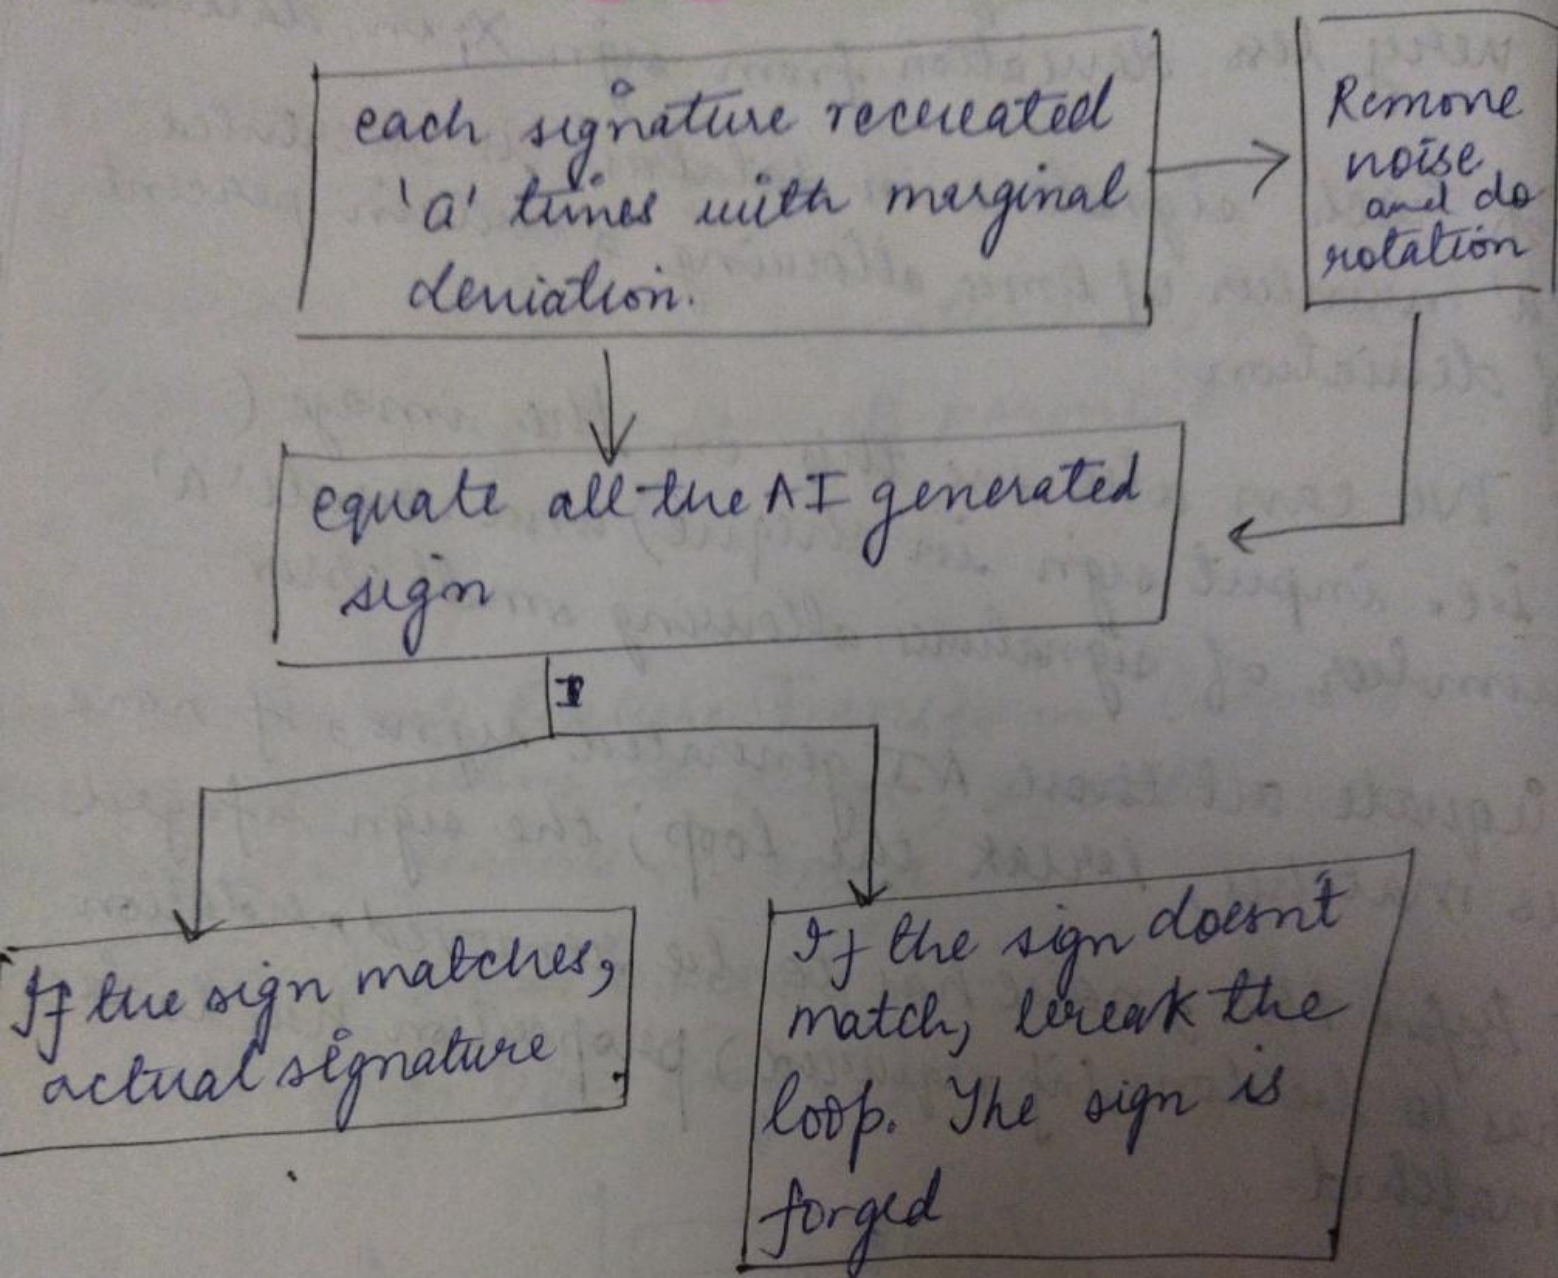 each signature recreated
'a' times with marginal
deviation.
Remove
noise
and do
rotation
equate all the AI generated
sign
If the sign matches,
actual signature
If the sign doesn't
match, break the
loop. The sign is
forged